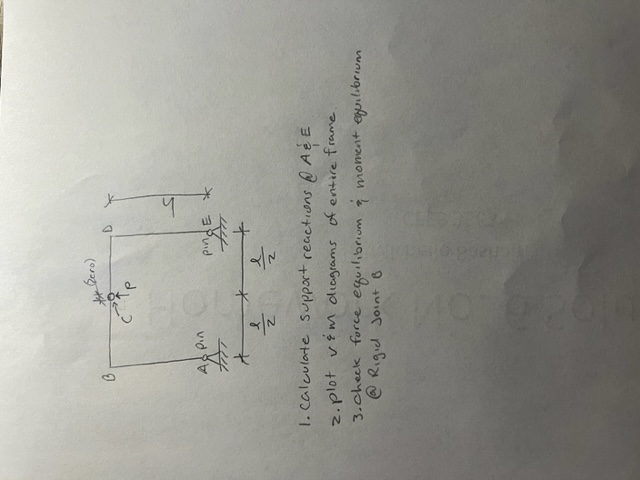 ** (zero)
B
C
P
D
A pin
pin E
l/2
l/2
1. Calculate support reactions @ A & E
2. Plot V & M diagrams of entire frame.
3. Check force equilibrium & moment equilibrium
@ Rigid Joint B